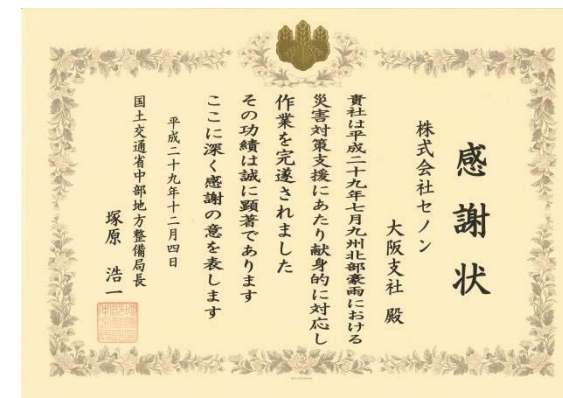 感謝状
株式会社セノン
大阪支社 殿
貴社は平成二十九年七月九州北部豪雨における
災害対策支援にあたり献身的に対応し
作業を完遂されました
その功績は誠に顕著であります
ここに深く感謝の意を表します
平成二十九年十二月四日
国土交通省中部地方整備局長
塚原 浩一